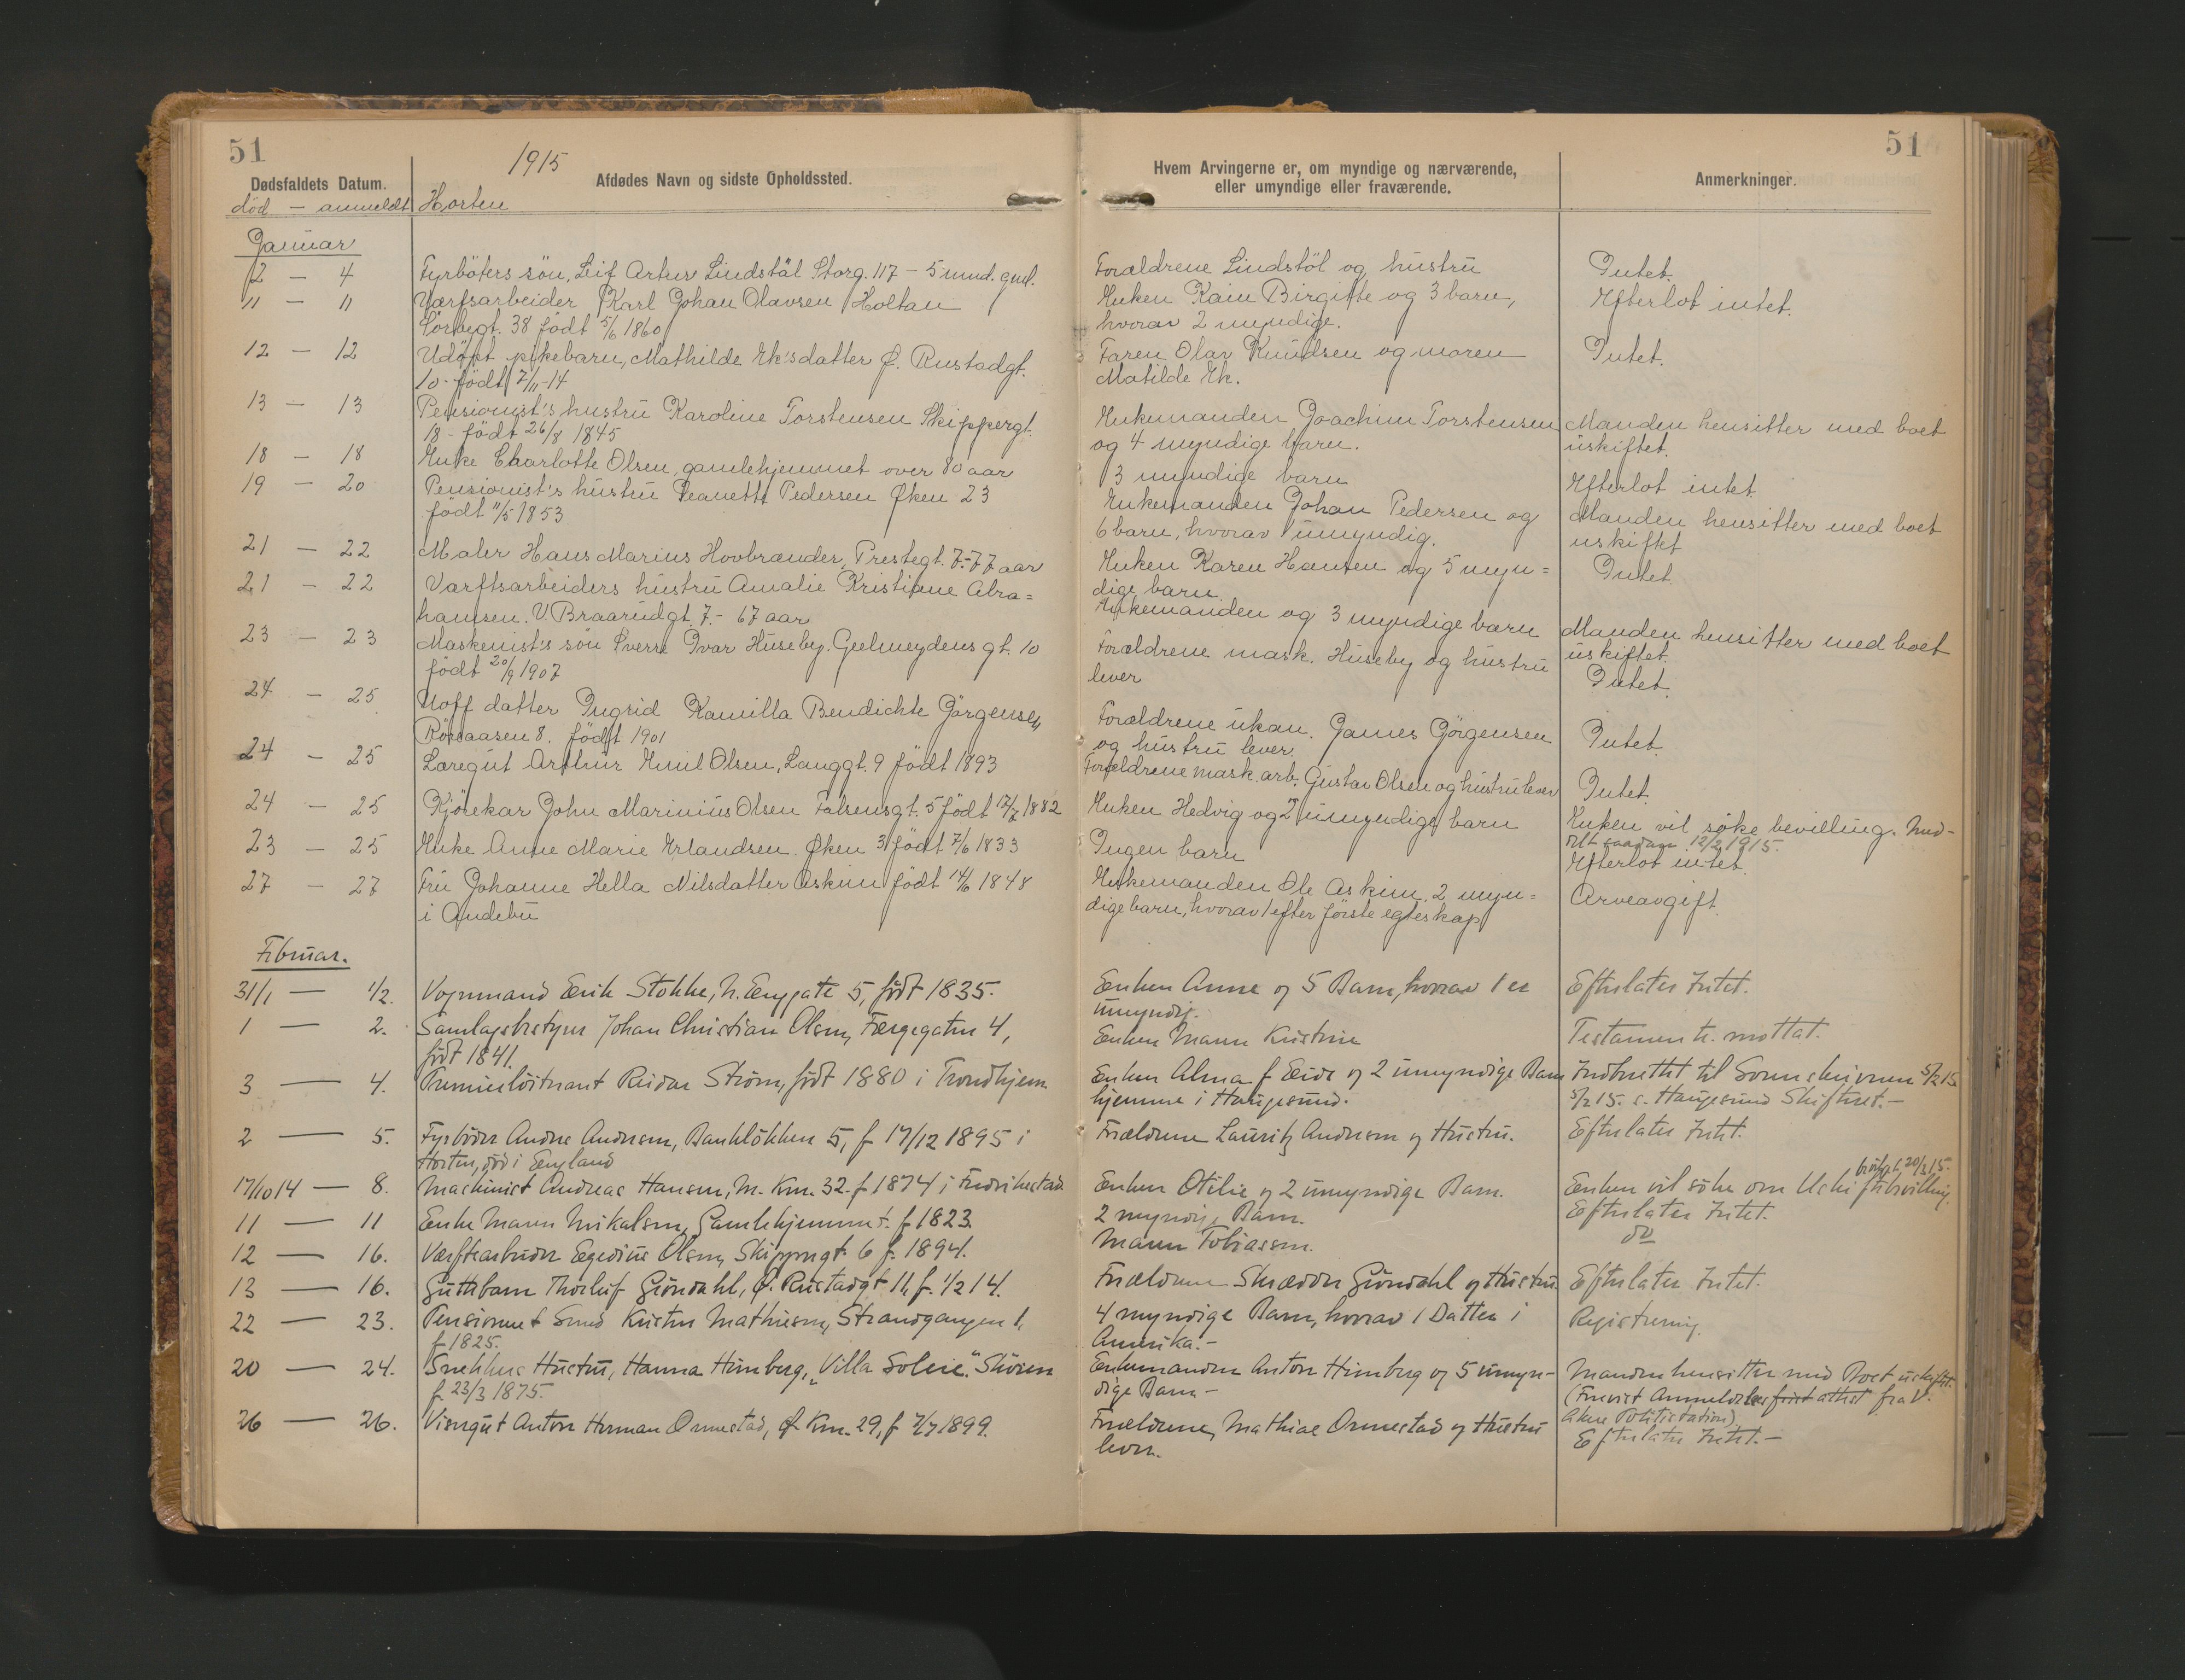 51
51
1915
Dødsfaldets Datum.
Afdødes Navn og sidste Opholdssted.
Hvem Arvingerne er, om myndige og nærværende,
eller umyndige eller fraværende.
Anmerkninger.
död — anmeldt
Horten
Januar
2 — 4
Fyrböters sön, Leif Artur Lindstöl Storg. 117 – 5 mnd. gml.
Forældrene Lindstöl og hustru
Intet.
11 — 11
Værfsarbeider Karl Johan Olavsen Holtan
Sörbygt. 38 födt 5/6 1860
Enken Kain Birgitte og 3 barn,
hvorav 2 myndige.
Efterlot intet.
12 — 12
Udöpt pikebarn, Mathilde Ek'sdatter Ø. Rustadgt.
10 – födt 7/11-14
Faren Olav Knudsen og moren
Matilde Ek.
Intet.
13 — 13
Pensionist's hustru Karoline Torstensen Skippergt.
18 – födt 26/8 1845
Enkemanden Joachim Torstensen
og 4 myndige barn.
Manden hensitter med boet
uskiftet.
18 — 18
Enke Charlotte Olsen, gamlehjemmet over 80 aar
3 myndige barn
Efterlot intet
19 — 20
Pensionist's hustru Jeanette Pedersen Øken 23
födt 11/5 1853
Enkemanden Johan Pedersen og
6 barn, hvorav 1 umyndig.
Manden hensitter med boet
uskiftet
21 — 22
Maler Hans Marius Hovbrænder, Prestegt. 7 – 77 aar
Enken Karen Hansen og 5 myn=
dige barn
Intet
21 — 22
Varftsarbeiders hustru Amalie Kristiane Abra=
hamsen. V. Braarudgt. 7. – 67 aar
Enkemanden og 3 myndige barn
Manden hensitter med boet
uskiftet.
23 — 23
Maskenist's sön Sverre Ivar Huseby. Geelmeydens gt. 10
födt 20/9 1907
Forældrene mask. Huseby og hustru
lever
Intet.
24 — 25
Uoff datter Ingrid Kamilla Bendichte Jörgensen
Röraasen 8. födt 1901
Forældrene ukan. James Jörgensen
og hustru lever.
Intet.
24 — 25
Læregut Arthur Emil Olsen, Langgt. 9 födt 1893
Forældrene mask. arb. Gustav Olsen og hustru lever
Intet.
24 — 25
Kjörekar John Marinius Olsen Falsensgt. 5 födt 17/7 1882
Enken Hedvig og 2 umyndige barn
Enken vil söke bevilling. Med-
delt 12/2 1915.
23 — 25
Enke Anne Marie Erlandsen. Øken 3 födt 7/6 1833
Ingen barn
Efterlot intet.
27 — 27
Fru Johanne Hella Nilsdatter Askim födt 14/6 1848
i Andebu
Enkemanden Ole Askim, 2 myn=
dige barn, hvorav 1 efter förste egteskap
Arveavgift.
Februar.
31/1 — 1/2.
Vognmand Erik Stokke, N. Enggate 5, født 1835.
Enken Anne og 5 Barn, hvorav 1 er
umyndig.
Efterlater Intet.
1 — 2.
Samlagsbestyrer Johan Christian Olsen, Færgegaten 4,
født 1841.
Enken Maren Kristine
Testamente mottat.
3 — 4.
Premierløitnant Reidar Strøm, født 1880 i Trondhjem
Enken Alma f Eide og 2 umyndige Barn
hjemme i Haugesund.
Indberettet til Sorenskriveren 5/2 15
5/2 15. Haugesund Skifteret.–
2 — 5.
Fyrbøder Andre Andersen, Bankløkken 5, f 17/12 1895 i
Horten, død i England
Forældrene Lauritz Andersen og Hustru.
Efterlater Intet.
17/10 14 — 8.
Maskinist Andreas Hansen, M. Km. 32. f 1874 i Fredrikstad
Enken Otilie og 2 umyndige Barn.
Enken vil søke om Uskiftebevilling.
11 — 11
Enke Maren Mikalsen, Gamlehjemmet. f 1823.
2 myndige Barn.
Efterlater Intet.
12 — 16.
Værftsarbeider Egedius Olsen, Skippergt 6 f. 1894.
Maren Tobiassen.
do
13 — 16.
Guttebarn Thorleif Gröndahl, Ø. Rustadgt 11, f. 1/2 14.
Forældrene Skrædder Gröndahl og Hustru.
Efterlater Intet.
22 — 23.
Pensioneret Smed Kristen Mathiesen, Strandgangen 1,
f 1825.
4 myndige Barn, hvorav 1 Datter i
Amerika.–
Registrering.
20 — 24.
Snekkers Hustru, Hanna Heimberg, "Villa Soleie". Skoien
f 23/3 1875.
Enkemanden Anton Heimberg og 5 umyn-
dige Barn –
Manden hensitter med Boet uskiftet.
(Forevist Anmeldelses attest fra V.
Akers Politistation).
26 — 26.
Visergut Anton Herman Ormestad, Ø Km. 29, f 7/7 1899.
Forældrene, Mathias Ormestad og Hustru
lever.
Efterlater Intet.–